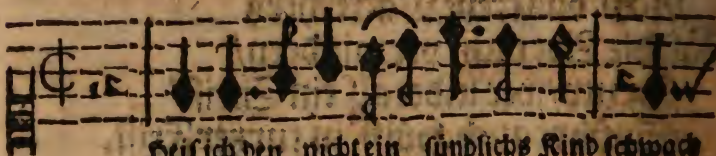 Heiß ich den nicht ein sündlichs Kind schwach